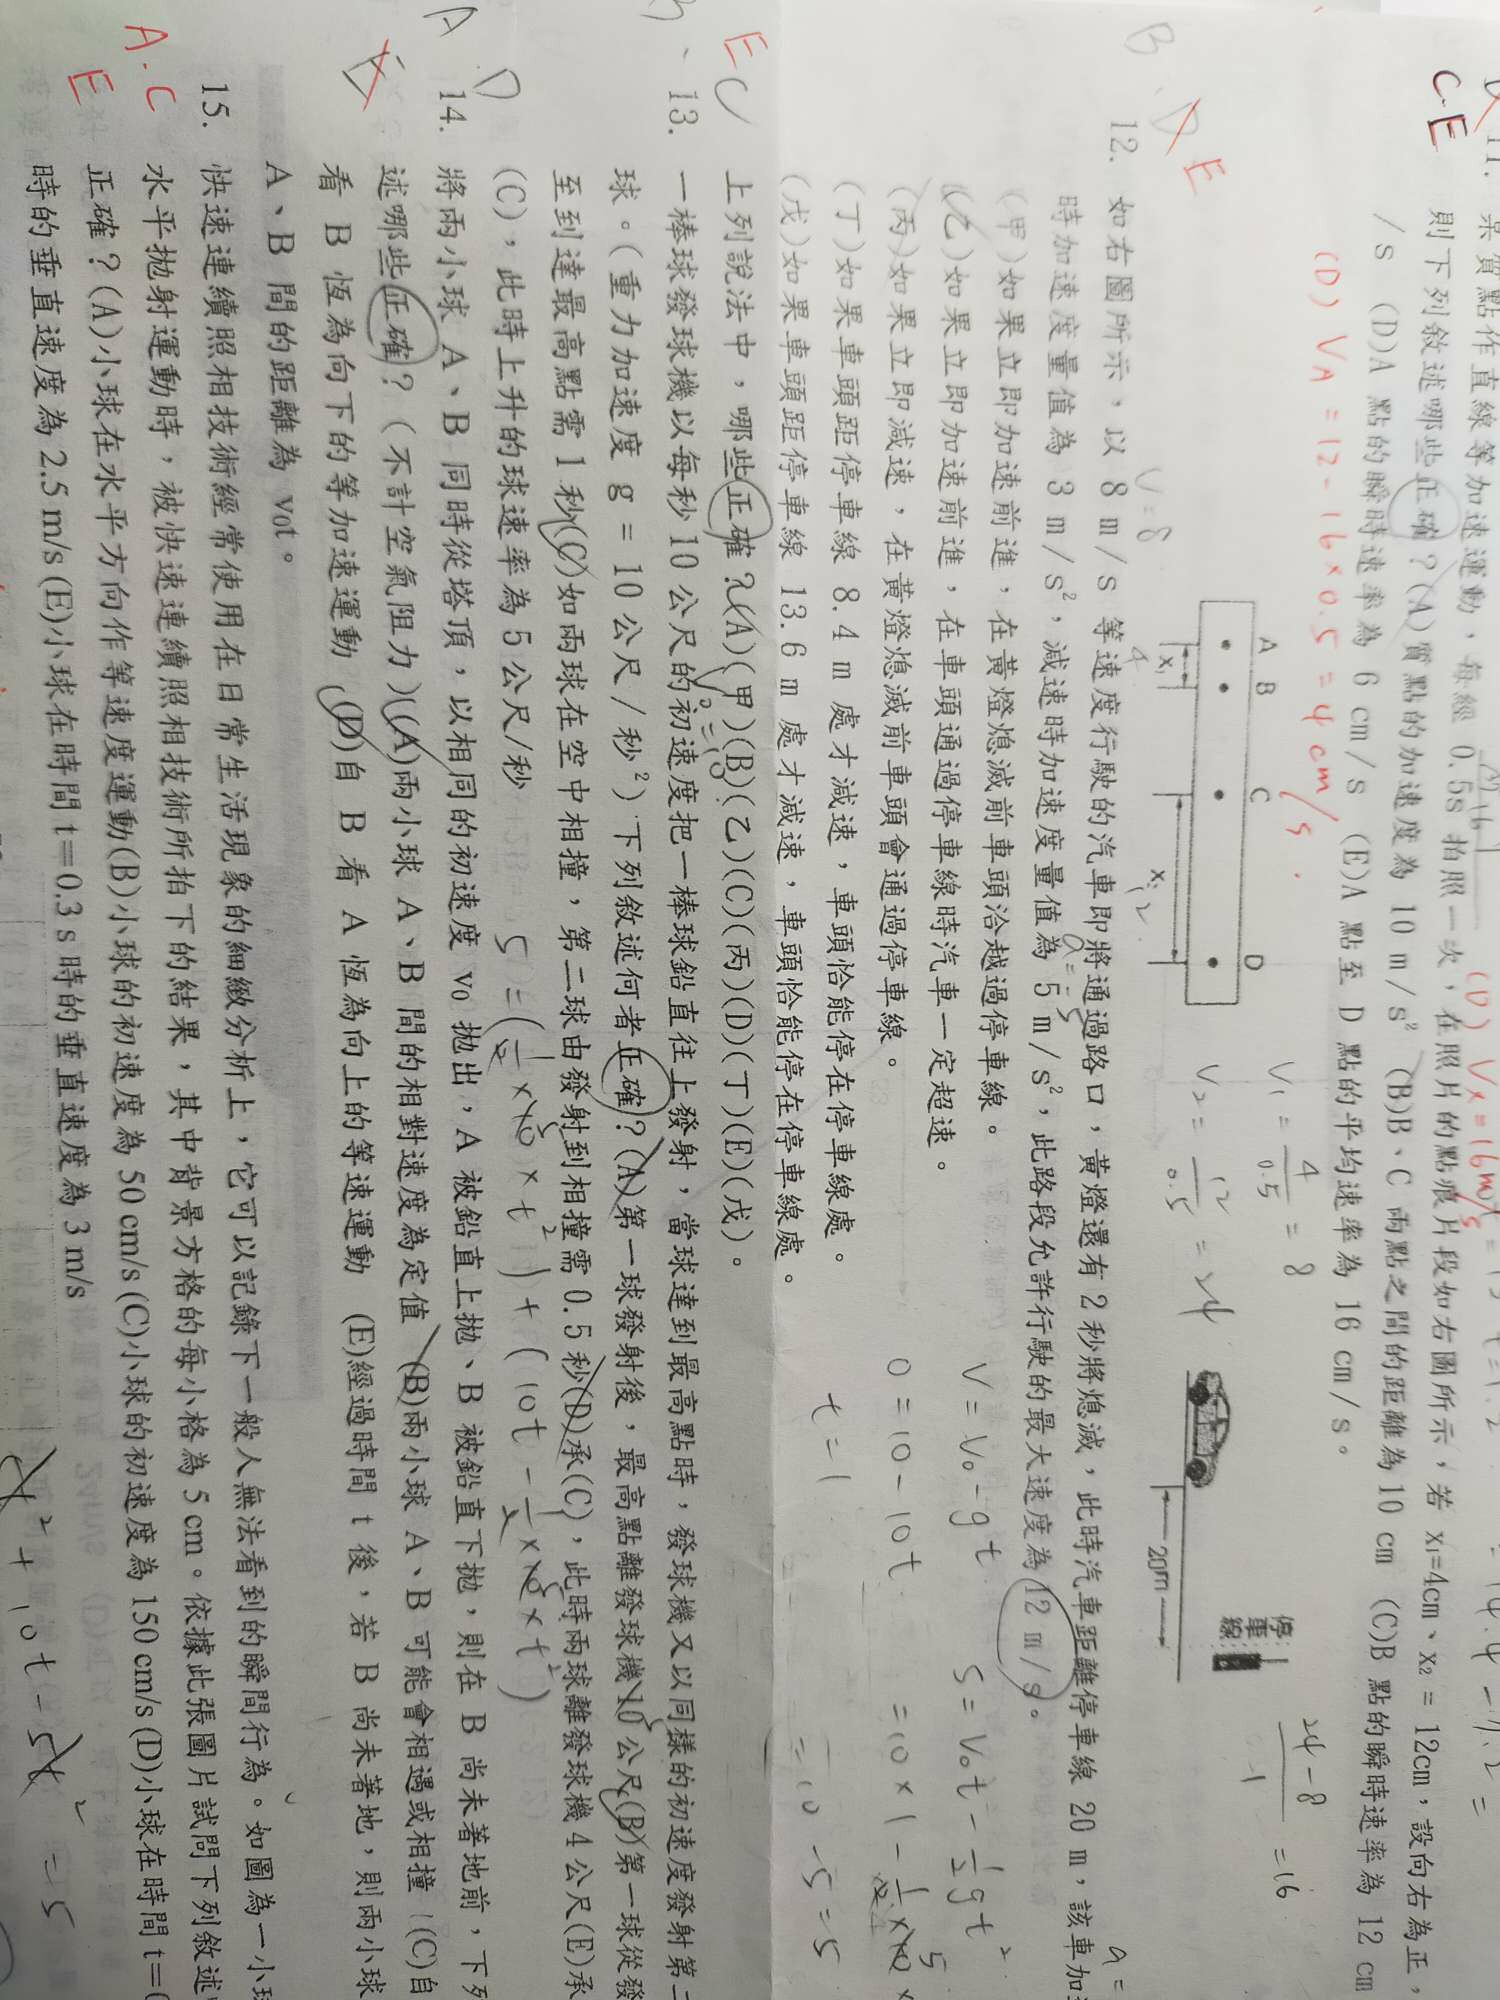 11. 某質點作直線等加速運動，每經 0.5s 拍照一次，在照片的點痕片段如右圖所示，若 x₁=4cm、x₂ = 12cm，設向右為正，
則下列敘述哪些正確？(A)質點的加速度為 10 m/s² (B)B、C 兩點之間的距離為 10 cm (C)B 點的瞬時速率為 12 cm
/s (D)A 點的瞬時速率為 6 cm/s (E)A 點至 D 點的平均速率為 16 cm/s。
C.E
(D) VA = 12 - 16×0.5 = 4 cm/s
A B C D
x₁ x₂
V₁ = 4/0.5 = 8
V₂ = 12/0.5 = 24
24-8/1 = 16
停車線
20m
B、D E
V=8
12. 如右圖所示，以 8 m/s 等速度行駛的汽車即將通過路口，黃燈還有 2 秒將熄滅，此時汽車距離停車線 20 m，該車加
時加速度量值為 3 m/s²，減速時加速度量值為 5 m/s²，此路段允許行駛的最大速度為 12 m/s。
(甲)如果立即加速前進，在黃燈熄滅前車頭洽越過停車線。
(乙)如果立即加速前進，在車頭通過停車線時汽車一定超速。
(丙)如果立即減速，在黃燈熄滅前車頭會通過停車線。
(丁)如果車頭距停車線 8.4 m 處才減速，車頭恰能停在停車線處。
(戊)如果車頭距停車線 13.6 m 處才減速，車頭恰能停在停車線處。
上列說法中，哪些正確？(A)(甲)(B)(乙)(C)(丙)(D)(丁)(E)(戊)。
V = V₀ - gt
0 = 10 - 10t
t = 1
S = V₀t - 1/2 gt²
= 10 - 5 = 5
E
13. 一棒球發球機以每秒 10 公尺的初速度把一棒球鉛直往上發射，當球達到最高點時，發球機又以同樣的初速度發射第二
球。(重力加速度 g = 10 公尺/秒²)下列敘述何者正確？(A)第一球發射後，最高點離發球機 10 公尺(B)第一球從發
至到達最高點需 1 秒(C)如兩球在空中相撞，第二球由發射到相撞需 0.5 秒(D)承(C)，此時兩球離發球機 4 公尺(E)承
(C)，此時上升的球速率為 5 公尺/秒
5 = (1/2×10×t²) + (10t - 1/2×10×t²)
A D
14. 將兩小球 A、B 同時從塔頂，以相同的初速度 v₀ 拋出，A 被鉛直上拋、B 被鉛直下拋，則在 B 尚未著地前，下列
述哪些正確？(不計空氣阻力)(A)兩小球 A、B 間的相對速度為定值 (B)兩小球 A、B 可能會相遇或相撞 (C)自
看 B 恆為向下的等加速運動 (D)自 B 看 A 恆為向上的等速運動 (E)經過時間 t 後，若 B 尚未著地，則兩小球
A、B 間的距離為 v₀t。
A.C
E
15. 快速連續照相技術經常使用在日常生活現象的細緻分析上，它可以記錄下一般人無法看到的瞬間行為。如圖為一小球
水平拋射運動時，被快速連續照相技術所拍下的結果，其中背景方格的每小格為 5 cm。依據此張圖片試問下列敘述
正確？(A)小球在水平方向作等速度運動(B)小球的初速度為 50 cm/s(C)小球的初速度為 150 cm/s(D)小球在時間 t=
時的垂直速度為 2.5 m/s(E)小球在時間 t=0.3 s 時的垂直速度為 3 m/s